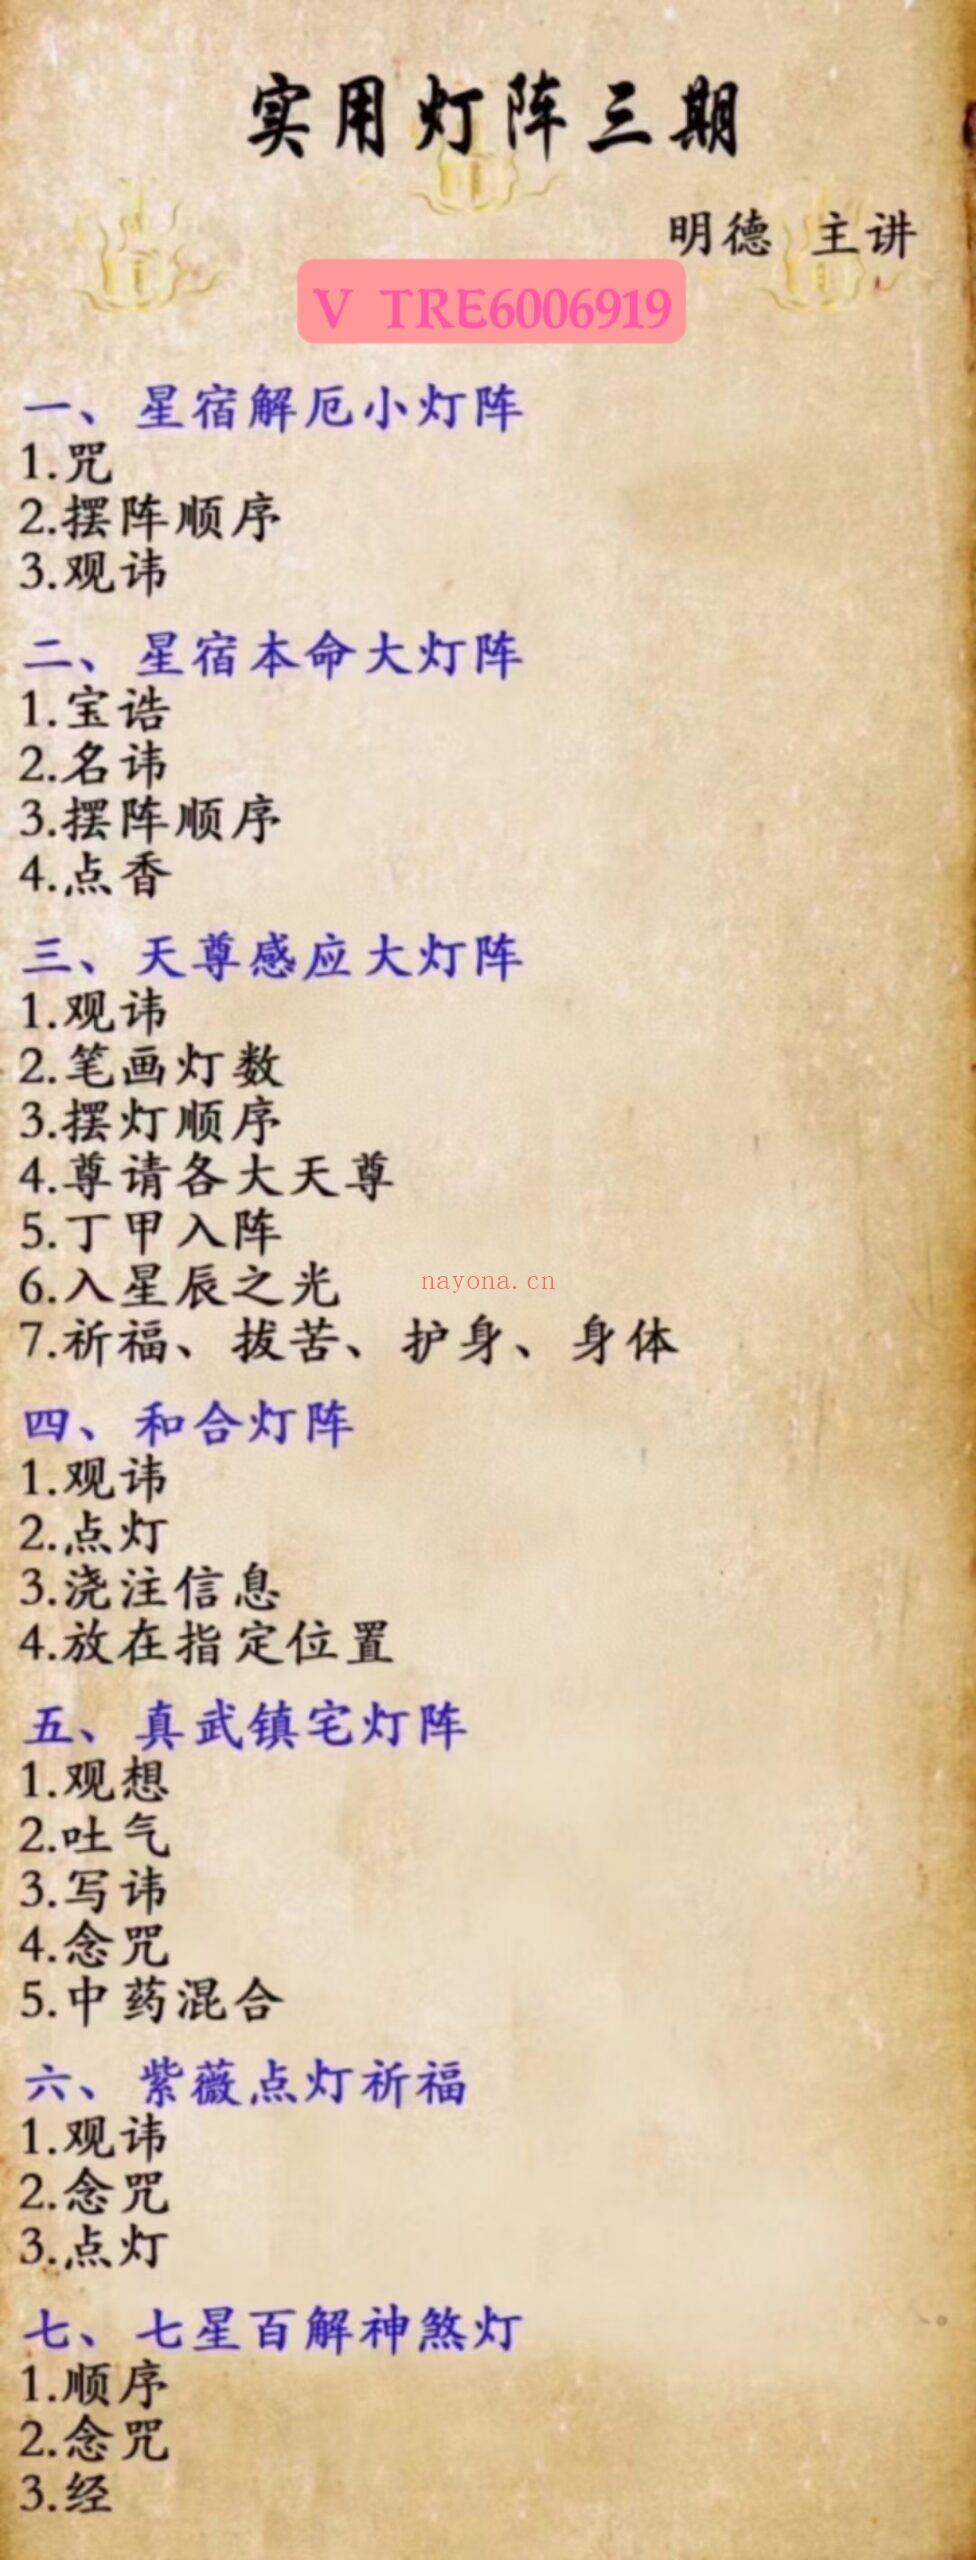 实用灯阵三期
明德 主讲
V TRE6006919
一、星宿解厄小灯阵
1.咒
2.摆阵顺序
3.观讳
二、星宿本命大灯阵
1.宝诰
2.名讳
3.摆阵顺序
4.点香
三、天尊感应大灯阵
1.观讳
2.笔画灯数
3.摆灯顺序
4.尊请各大天尊
5.丁甲入阵
6.入星辰之光
nayona.cn
7.祈福、拔苦、护身、身体
四、和合灯阵
1.观讳
2.点灯
3.浇注信息
4.放在指定位置
五、真武镇宅灯阵
1.观想
2.吐气
3.写讳
4.念咒
5.中药混合
六、紫薇点灯祈福
1.观讳
2.念咒
3.点灯
七、七星百解神煞灯
1.顺序
2.念咒
3.经